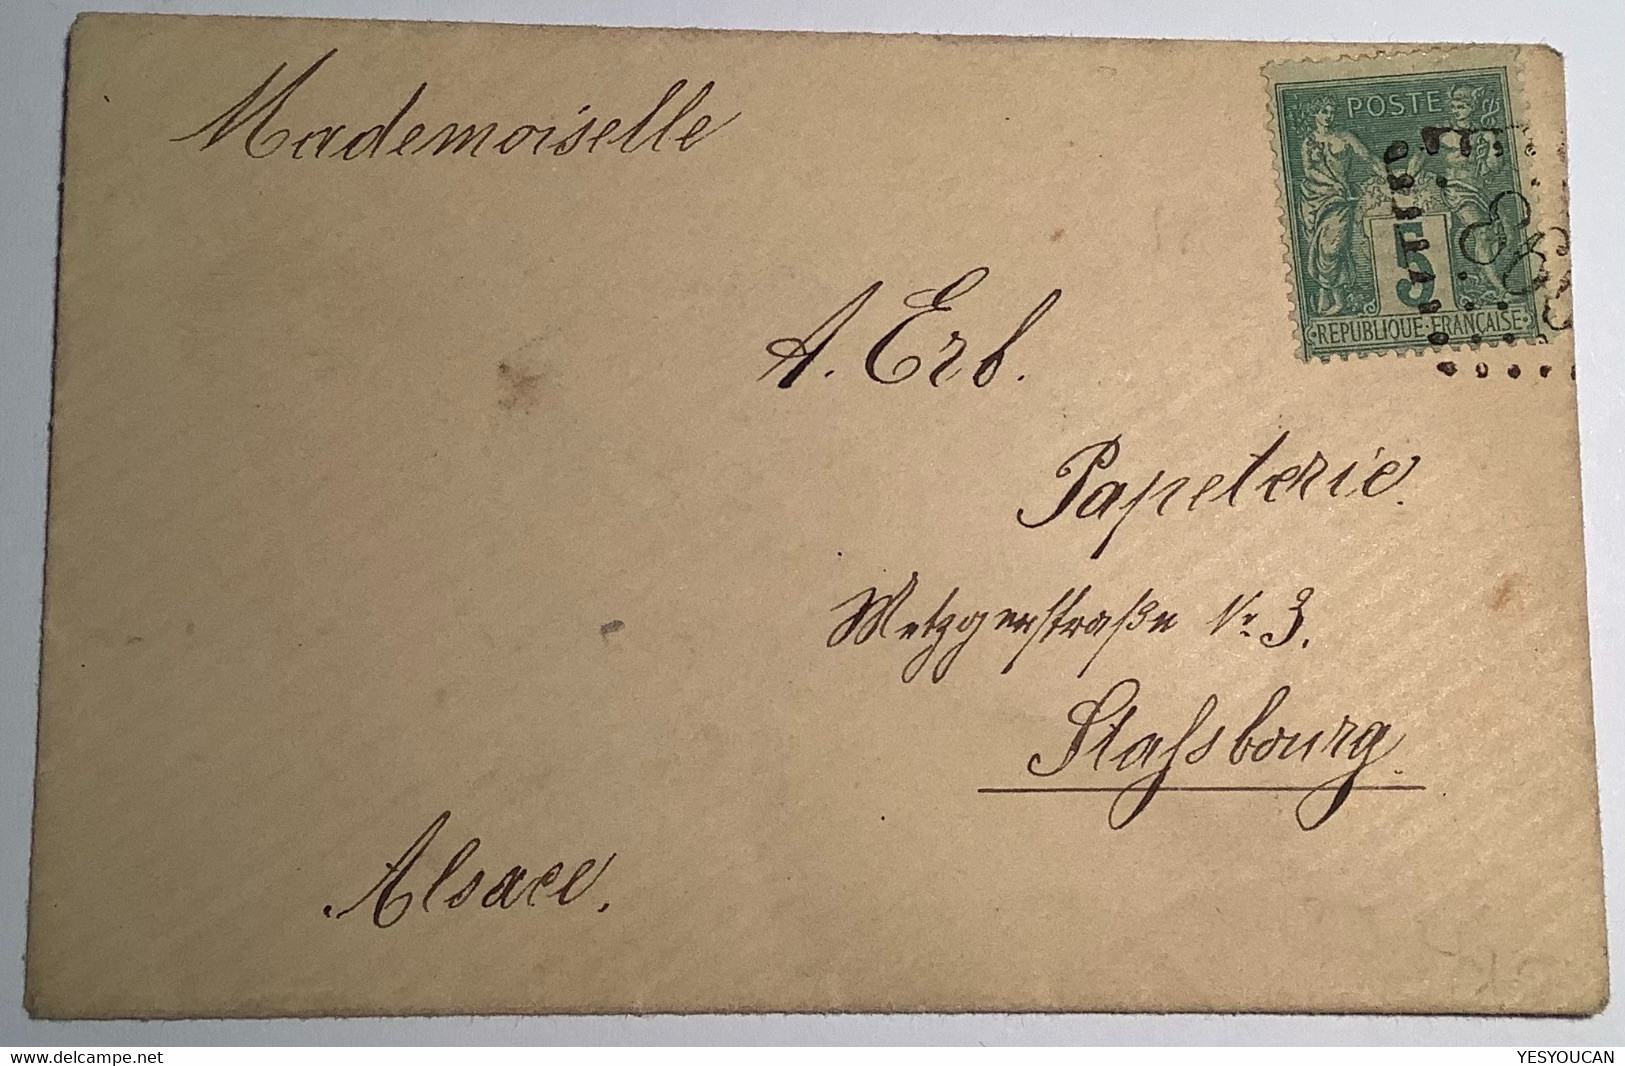 Mademoiselle
POSTE
5
REPUBLIQUE FRANÇAISE
A. Erb.
Papeterie.
Metzgerstraße Nr. 3.
Stassbourg.
Alsace.
YESYOUCAN
www.delcampe.net